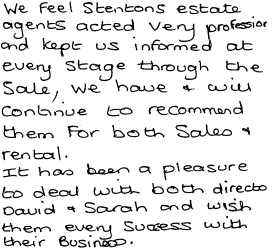 We feel Stentons estate
agents acted very profession
and kept us informed at
every stage through the
Sale, we have & will
Continue to recommend
them for both Sales &
rental.
It has been a pleasure
to deal with both directo
David & Sarah and wish
them every Success with
their Business.